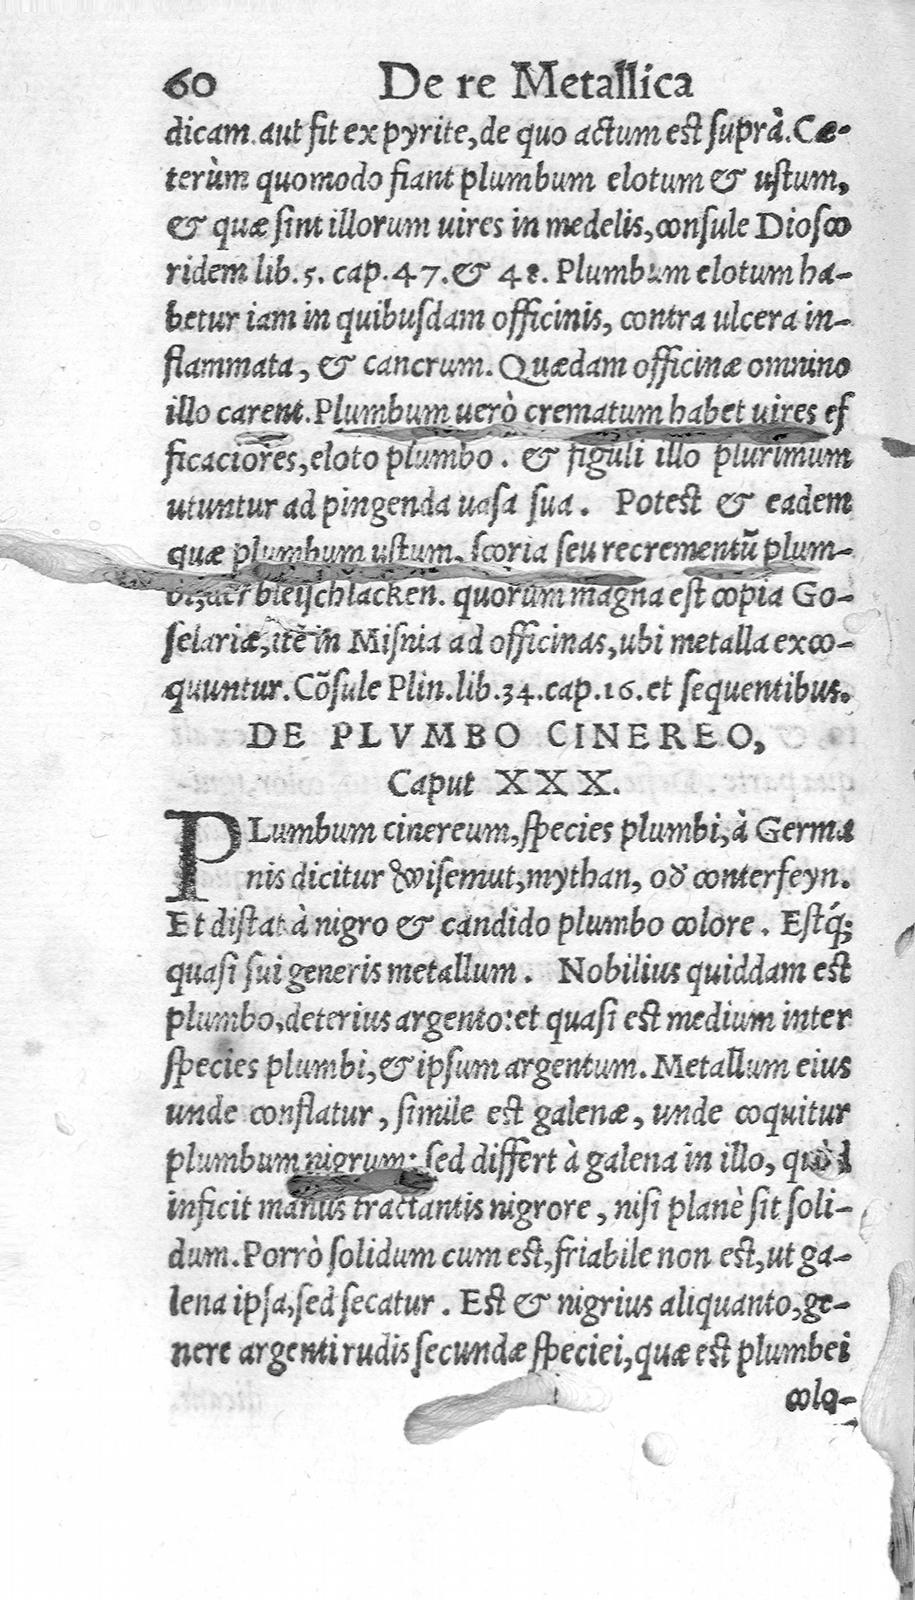 60 De re Metallica
dicam. aut fit ex pyrite, de quo actum est suprà. Cæ-
terùm quomodo fiant plumbum elotum & ustum,
& quæ sint illorum uires in medelis, consule Diosco
ridem lib. 5. cap. 47. & 48. Plumbum elotum ha-
betur iam in quibusdam officinis, contra ulcera in-
flammata, & cancrum. Quædam officinæ omnino
illo carent. Plumbum uerò crematum habet uires ef
ficaciores, eloto plumbo. & figuli illo plurimum
utuntur ad pingenda uasa sua. Potest & eadem
quæ plumbum ustum, scoria seu recrementũ plum-
bi, der bleijschlacken. quorum magna est copia Go-
selariæ, itẽ in Misnia ad officinas, ubi metalla exco-
quuntur. Cõsule Plin. lib. 34. cap. 16. et sequentibus.
DE PLVMBO CINEREO,
Caput XXX.
PLumbum cinereum, species plumbi, à Germa
nis dicitur wisemut, mythan, oď conterfeyn.
Et distat à nigro & candido plumbo colore. Estq́;
quasi sui generis metallum. Nobilius quiddam est
plumbo, deterius argento: et quasi est medium inter
species plumbi, & ipsum argentum. Metallum eius
unde conflatur, simile est galenæ, unde coquitur
plumbum nigrum: sed differt à galena in illo, quòd
inficit manus tractantis nigrore, nisi planè sit soli-
dum. Porrò solidum cum est, friabile non est, ut ga-
lena ipsa, sed secatur. Est & nigrius aliquanto, ge-
nere argenti rudis secundæ speciei, quæ est plumbei
colo-